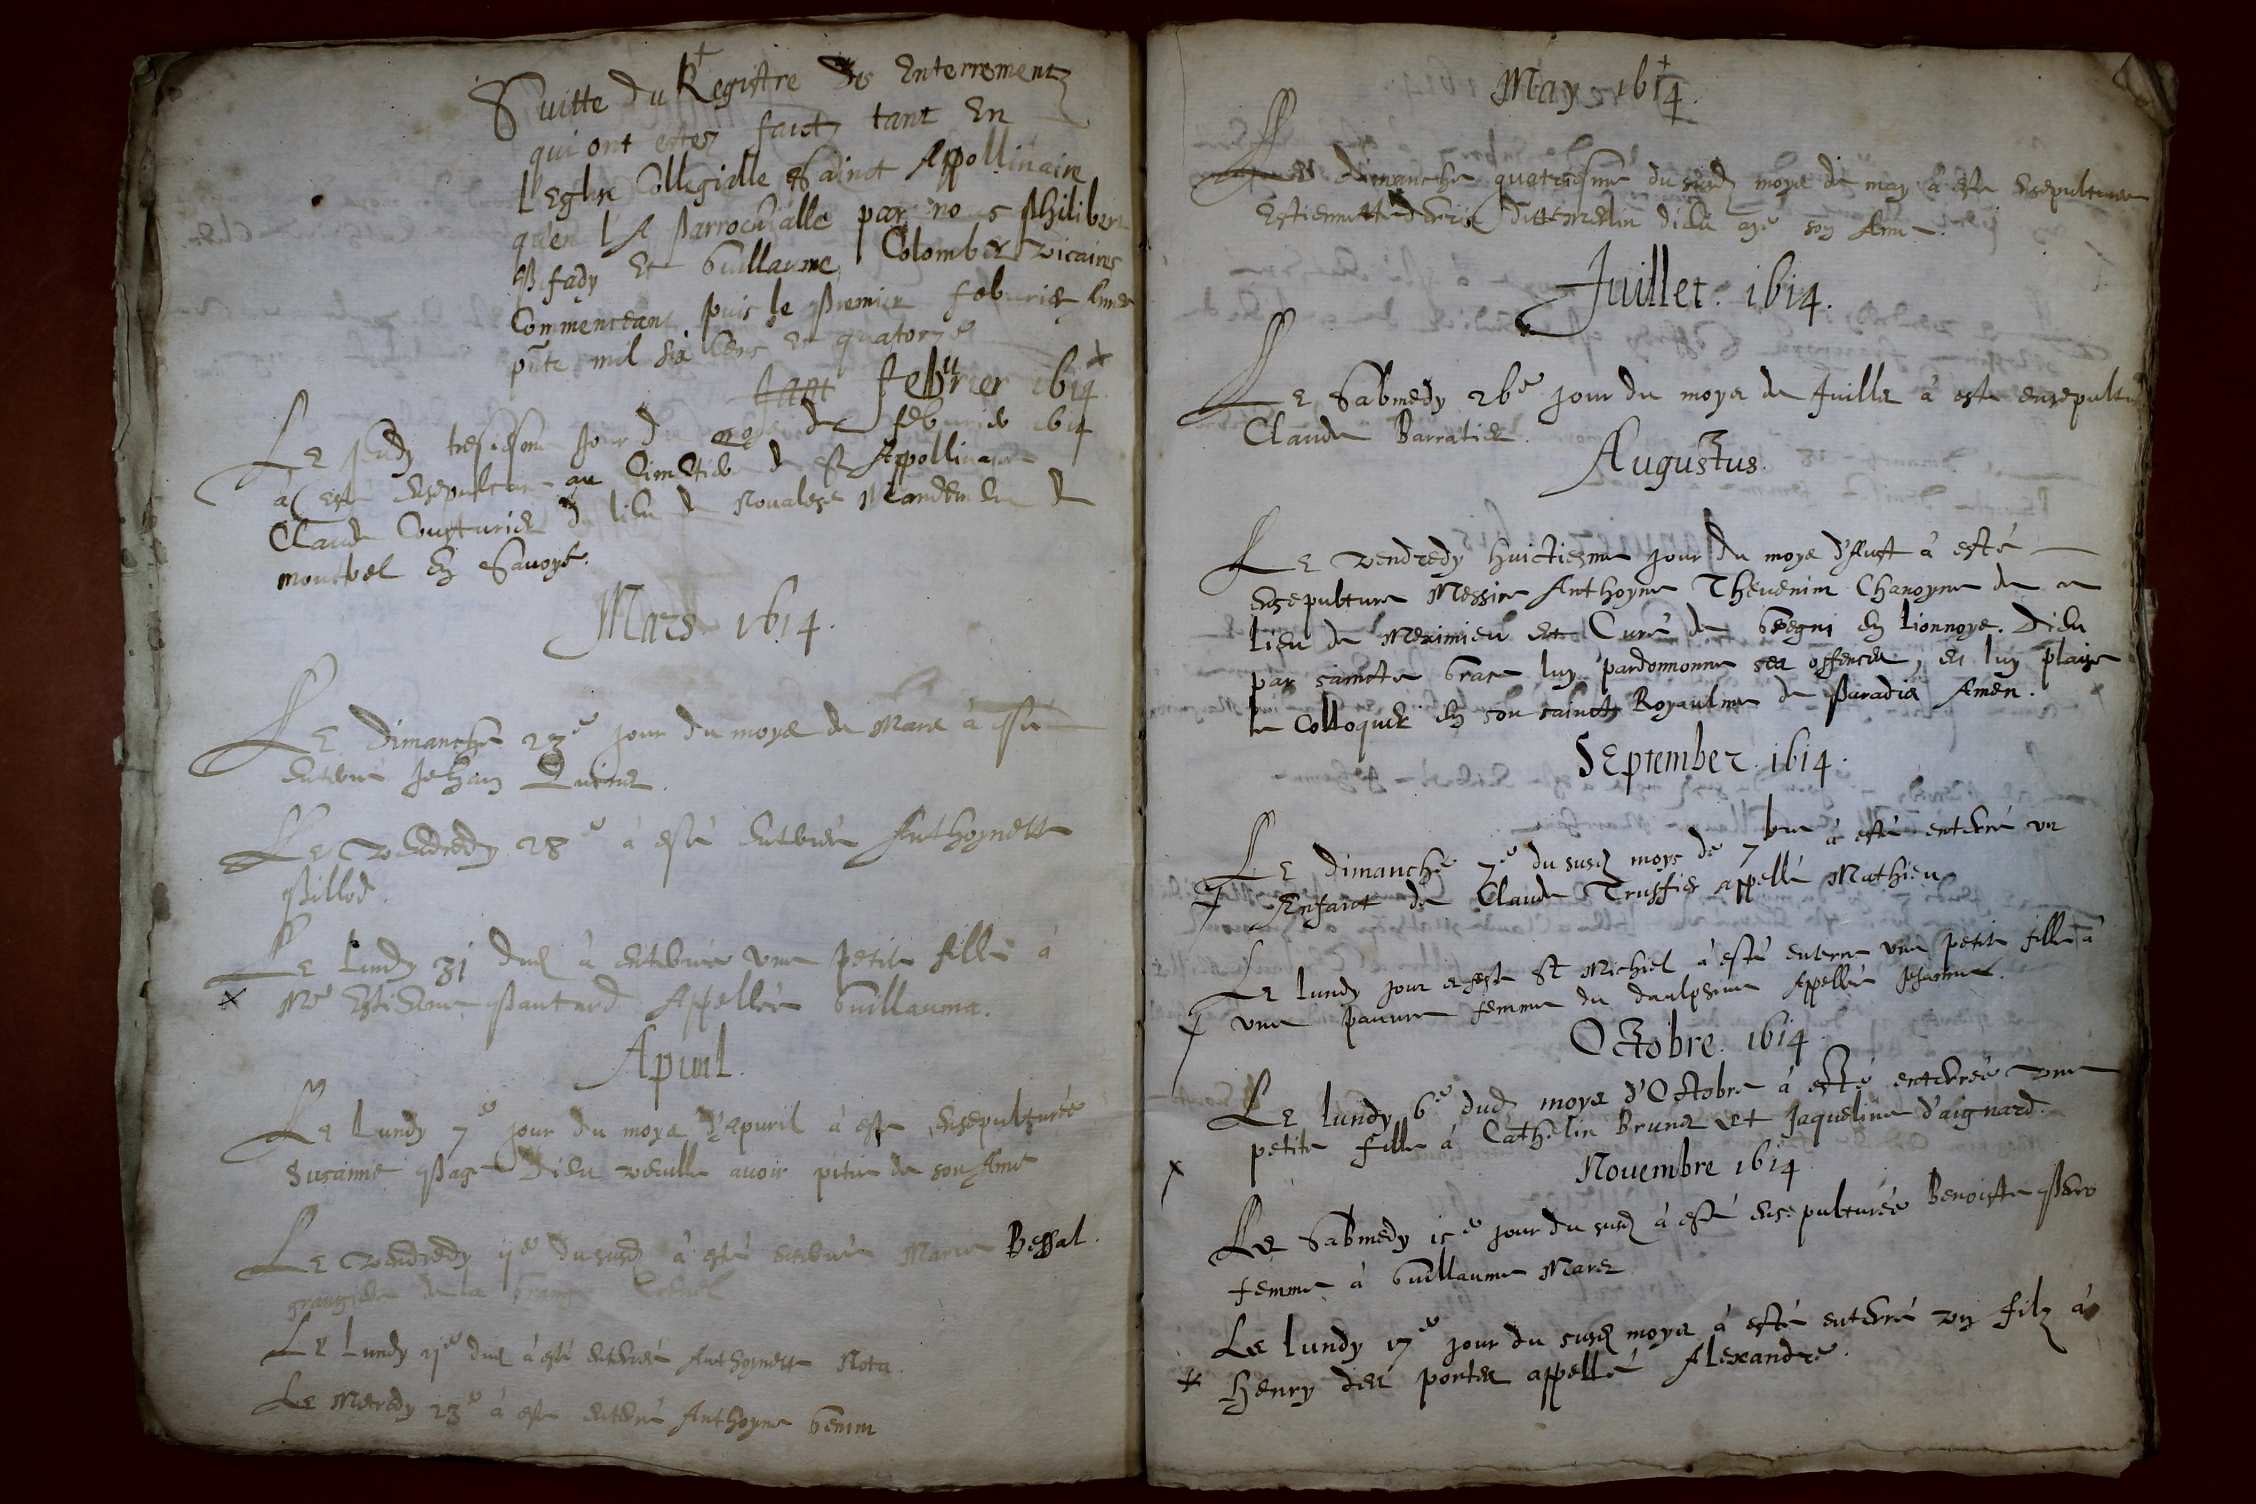 Suitte du Registre des Enterrementz
qui ont estez faictz tant En
l'Eglise Collegialle Sainct Appollinaire
qu'en la Parrochialle par nous Philibert
et Guillaume Colomber vicaires
Commenceant puis le Premier feburier
pñte mil six Cens et quatorze
Feburier 1614
Le Jeudy tresiesme Jour du moys de feburier 1614
à esté Ensepulturé au Cimetiere de St Appollinaire
Claude Cousturier du lieu de Noualese Mandement de
montbel En Sauoye.
Mars 1614.
Le Dimanche 23e jour du moys de Mars à esté
enterré Jehan
Le Vendredy 28e à esté Enterrée Anthoynette
Billod.
Le Lundy 31 dud à enterrée vne petite fille à
Me Estienne Pantard Appellée Guillauma.
Apuril.
Le Lundy 7e jour du moys d'apuril à este Ensepulturée
Susanne Dieu veuille auoir pitie de son Ame
Le Vendredy dususd à esté enterrée Marie Bessal.
de la Grange
Le Lundy dud à esté enterrée Anthoynette Nota.
Le Mecredy 23e à este enterré Anthoyne Genin
May 1614.
Le dimanche quatriesme du susd moys de may à este Ensepulturee
Estiennette Dieu aye son Ame.
Juillet. 1614.
Le Sabmedy 26e jour du moys de Juillet à este ensepulturé
Claude Barratier.
Augustus.
Le Vendredy huictiesme jour du moys d'Aust à esté
Ensepulture Messire Anthoyne Thevenin Chanoyne de ce
lieu de Meximieu et Curé de en Lionnoys. Dieu
par saincte Grace luy pardonnonne ses offences, et luy plaise
le Colloquer En son sainct Royaulme de Paradis Amen.
September. 1614.
Le Dimanche 7e du susd moys de 7bre à esté enterré vn
Enfant de Claude Truffier appellé Mathieu
Le Lundy jour et feste St Michiel à esté enterre vne petite fille à
vne pauure femme du daulphine Appellée Jehanne.
Octobre. 1614
Le Lundy 6e dud moys d'Octobre à esté enterrée vne
petite fille à Cathelin Brunet et Jaqueline d'aignard.
Nouembre 1614
Le Sabmedy 15e jour du susd à esté Ensepulturée Benoiste
femme à Guillaume Maret
Le Lundy 17e jour du susd moys à esté enterré vn filz à
Henry des portes appellé Alexandre.